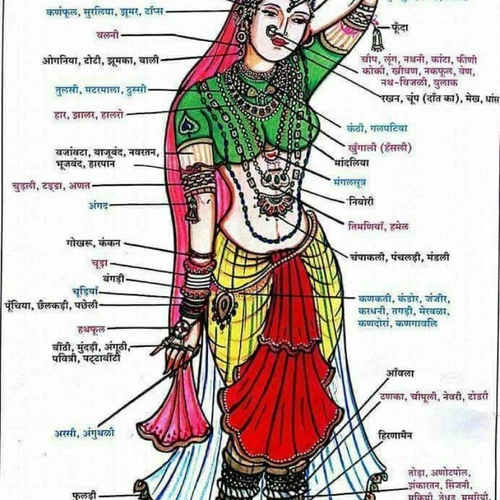 कर्णफूल, सुरलिया, झूमर, टॉप्स
वलनी
ओगनिया, टोटी, झूमका, बाली
तुलसी, मटरमाला, ठुस्सी
हार, झालर, हालरो
बजांवटा, बाजूबंद, नवरतन,
भूजबंद, हारपान
चुड़ली, टड्डा, अणत
अंगद
गोखरू, कंकन
चूड़ा
बंगड़ी
चूड़ियाँ
पूंचिया, छैलकड़ी, पछेली
हथफूल
बींठी, मुंदड़ी, अंगूठी,
पवित्री, पट्टाबींटी
अरसी, अंगुथळी
फूलड़ी
फूँदा
चीप, लूंग, नथनी, कांटा, फीणी
कोको, खींवण, नकफूल, वेण,
नथ-बिजली, वुलाक
रखन, चूंप (दाँत का), मेख, धांस
कंठी, गलपटिया
खुंगाली (हंसली)
मांदलिया
मंगलसूत्र
निबोरी
तिमणियाँ, हमेल
चंपाकली, पंचलड़ी, मंडली
कणकती, कंडोर, जंजीर,
करधनी, तगड़ी, मेरवळा,
कणदोरां, कणगावलि
आँवला
टणका, चौपूली, नेवरी, टोडरौ
हिरणामैन
तोड़ा, अणोटपोल,
झंकारतन, सिंजनी,